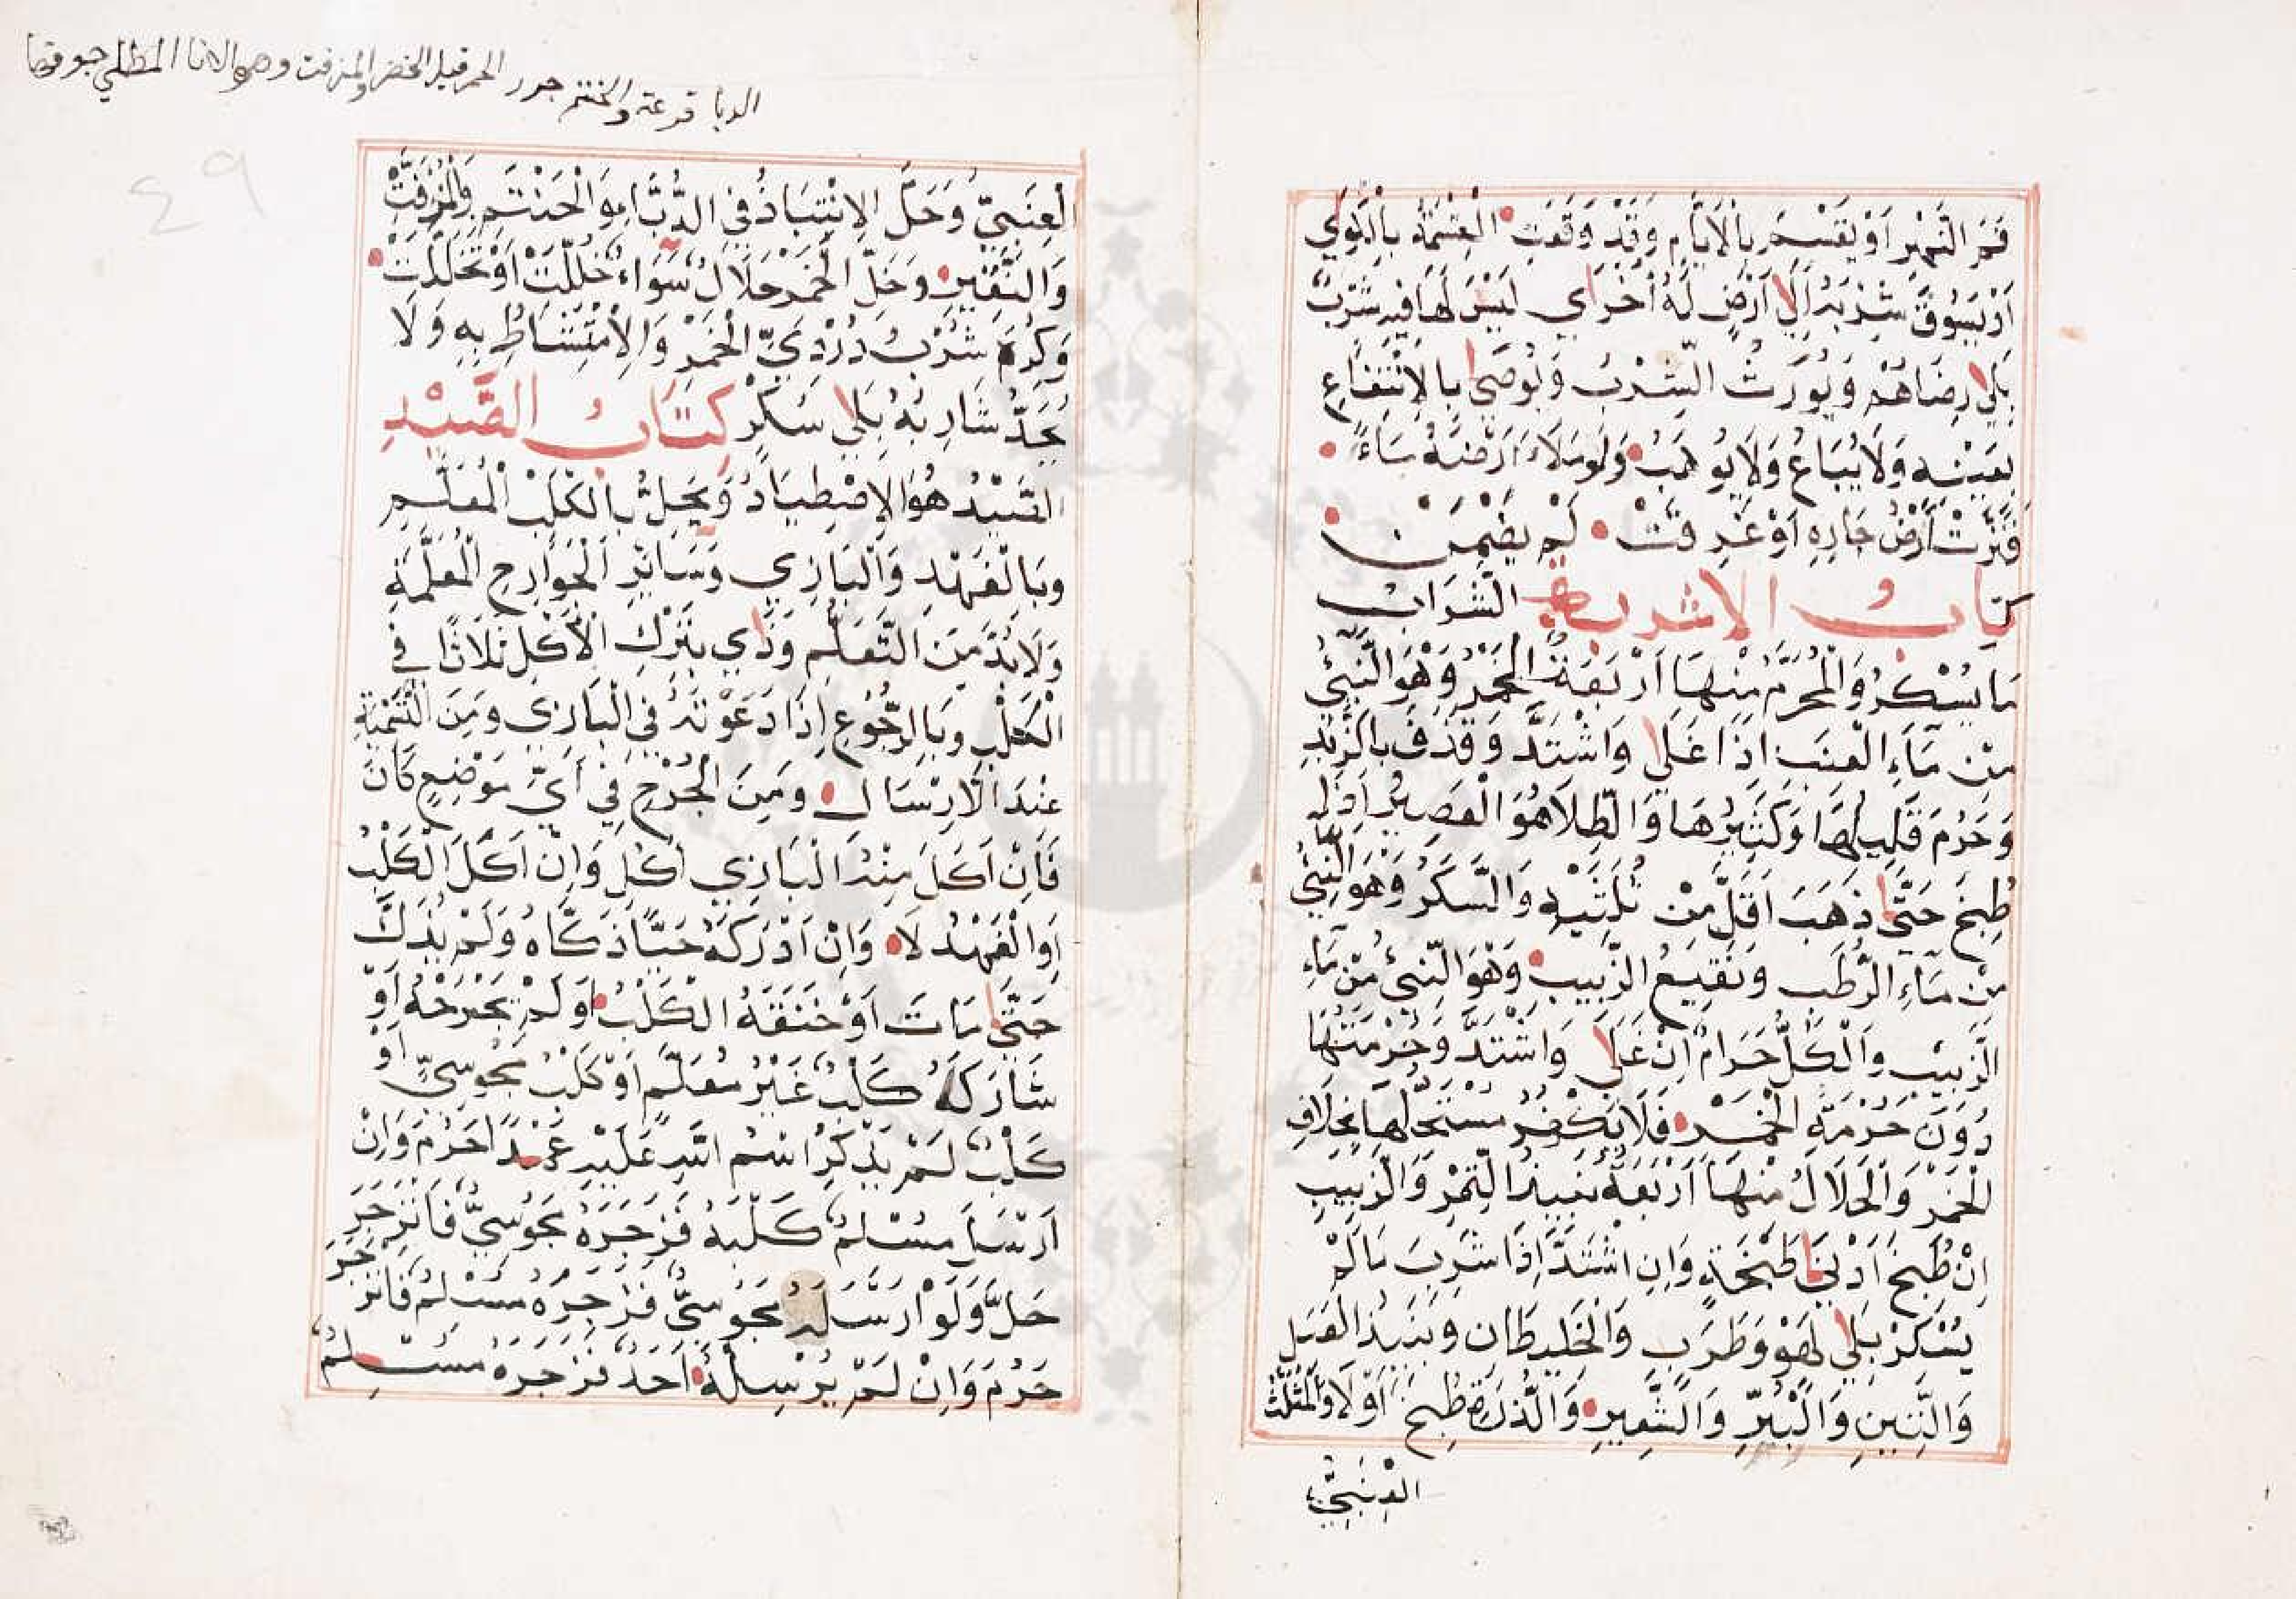 فَمَ النَّهْرِ اَوْ يَقْسِمَ بِالْاَيَّامِ وَقَدْ وَقَعَتِ الْقِسْمَةُ بِالْكُوَي
اَوْ يَسُوقَ شِرْبَهُ اِلَي اَرْضٍ لَهُ اُخْرَاي لَيْسَ لَهَا فِيهِ شِرْبٌ
بِلَي رِضَاهُمْ وَيُورَثُ الشِّرْبُ وَيُوصَي بِالْاِنْتِفَاعِ
بِعَيْنِهِ وَلَا يُبَاعُ وَلَا يُوهَبُ وَلَوْ مَلَاءَ اَرْضَهُ مَاءً
فَنَزَّتْ اَرْضُ جَارِهِ اَوْ غَرِقَتْ لَمْ يَضْمَنْ
كتَابُ الاشربة الشَّرَابُ
مَا يُسْكِرُ وَالْمُحَرَّمُ مِنْهَا اَرْبَعَةٌ الْخَمْرُ وَهُوَ النَّيِّئُ
مِنْ مَاءِ الْعِنَبِ اِذَا غَلَي وَاشْتَدَّ وَقَذَفَ بِالزَّبَدِ
وَحَرُمَ قَلِيلُهَا وَكَثِيرُهَا وَالطِّلَا هُوَ الْعَصِيرُ اِنْ
طُبِخَ حَتَّي ذَهَبَ اَقَلُّ مِنْ ثُلُثَيْهِ وَالسَّكَرُ وَهُوَ النَّيُّ
مِنْ مَاءِ الرُّطَبِ وَنَقِيعُ الزَّبِيبِ وَهُوَ النَّيُّ مِنْ مَاءِ
الزَّبِيبِ وَالْكُلُّ حَرَامٌ اِنْ غَلَي وَاشْتَدَّ وَحُرْمَتُهَا
دُونَ حُرْمَةِ الْخَمْرِ فَلَا يَكْفُرُ مُسْتَحِلُّهَا بِخِلَافِ
الْخَمْرِ وَالْحَلَالُ مِنْهَا اَرْبَعَةٌ نَبِيذُ التَّمْرِ وَالزَّبِيبِ
اِنْ طُبِخَ اَدْنَي طَبْخَةٍ وَاِنِ اشْتَدَّ اِذَا شَرِبَ مَا لَمْ
يُسْكِرْ بِلَي لَهْوٍ وَطَرَبٍ وَالْخَلِيطَانِ وَنَبِيذُ الْعَسَلِ
وَالتِّينِ وَالْبُرِّ وَالشَّعِيرِ وَالذُّرَةِ طُبِخَ اَوْ لَا وَالْمُثَلَّثُ
الْعِنَبِيُّ
الدبا قرعة والختم جرر الحمر قيل الخضر والمزفت وهو الانا المطلي جوفها
٤٩
الْعِنَبِيُّ وَحَلَّ الِانْتِبَاذُ فِي الدُّبَّاءِ وَالْحَنْتَمِ وَالْمُزَفَّتِ
وَالنَّقِيرِ وَخَلُّ الْخَمْرِ حَلَالٌ سَوَاءٌ خُلِّلَتْ اَوْ تَخَلَّلَتْ
وَكُرِهَ شُرْبُ دُرْدِيِّ الْخَمْرِ وَالْاِمْتِشَاطُ بِهِ وَلَا
يُحَدُّ شَارِبُهُ بِلَي سُكْرٍ كِتَابُ الصَّيْدِ
الصَّيْدُ هُوَ الْاِصْطِيَادُ وَيَحِلُّ بِالْكَلْبِ الْمُعَلَّمِ
وَبِالْفَهْدِ وَالْبَازِي وَسَائِرِ الْجَوَارِحِ الْمُعَلَّمَةِ
وَلَا بُدَّ مِنَ التَّعَلُّمِ وَذَاي بِتَرْكِ الْاَكْلِ ثَلَاثًا فِي
الْكَلْبِ وَبِالرُّجُوعِ اِذَا دَعَوْتَهُ فِي الْبَازِي وَمِنَ التَّسْمِيَةِ
عِنْدَ الْاِرْسَالِ وَمِنَ الْجُرْحِ فِي اَيِّ مَوْضِعٍ كَانَ
فَاِنْ اَكَلَ مِنْهُ الْبَازِي اُكِلَ وَاِنْ اَكَلَ الْكَلْبُ
اَوِ الْفَهْدُ لَا وَاِنْ اَدْرَكَهُ حَيًّا ذَكَّاهُ وَلَمْ يُذَكَّ
حَتَّي مَاتَ اَوْ خَنَقَهُ الْكَلْبُ وَلَمْ يَجْرَحْهُ اَوْ
شَارَكَهُ كَلْبٌ غَيْرُ مُعَلَّمٍ اَوْ كَلْبُ مَجُوسِيٍّ اَوْ
كَلْبٌ لَمْ يُذْكَرِ اسْمُ اللّٰهِ عَلَيْهِ عَمْدًا حَرُمَ وَاِنْ
اَرْسَلَ مُسْلِمٌ كَلْبَهُ فَزَجَرَهُ مَجُوسِيٌّ فَانْزَجَرَ
حَلَّ وَلَوْ اَرْسَلَهُ مَجُوسِيٌّ فَزَجَرَهُ مُسْلِمٌ فَانْزَجَرَ
حَرُمَ وَاِنْ لَمْ يُرْسِلْهُ اَحَدٌ فَزَجَرَهُ مُسْلِمٌ